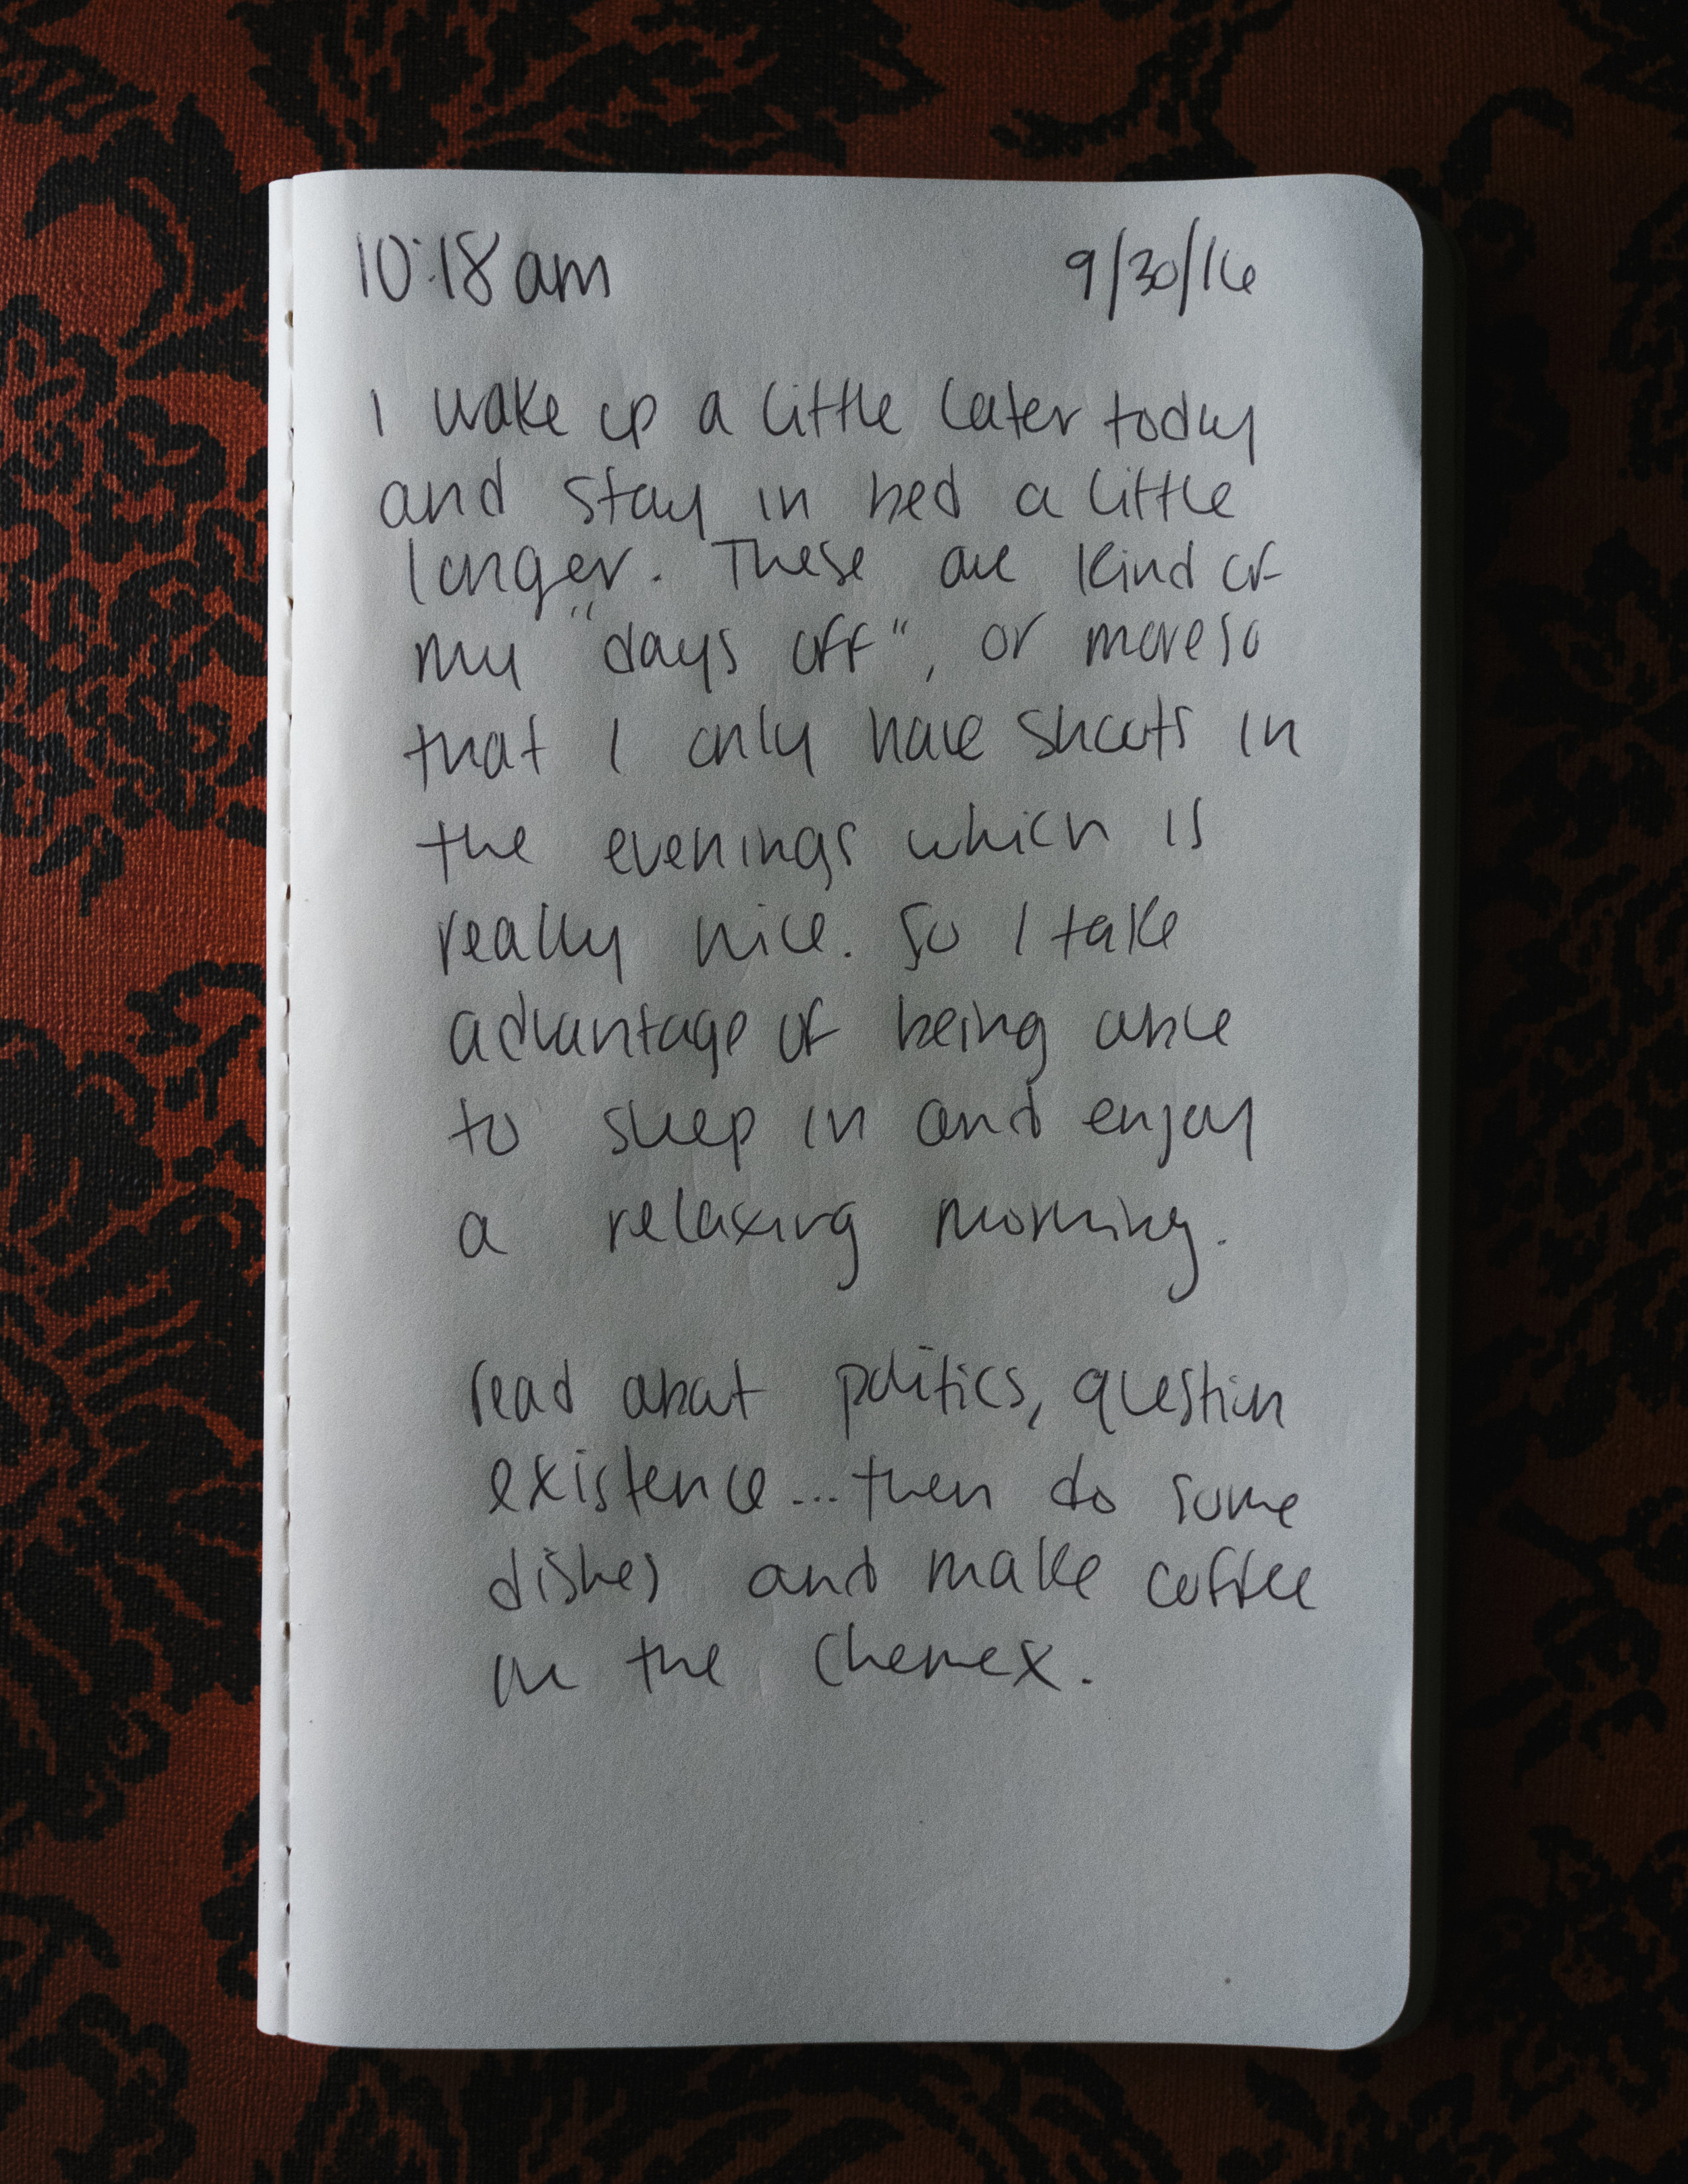 10:18am 9/30/16
I wake up a little later today
and stay in bed a little
longer. These are kind of
my "days off", or moreso
that I only have shoots in
the evenings which is
really nice. So I take
advantage of being able
to sleep in and enjoy
a relaxing morning.
read about politics, question
existence... then do some
dishes and make coffee
in the Chemex.